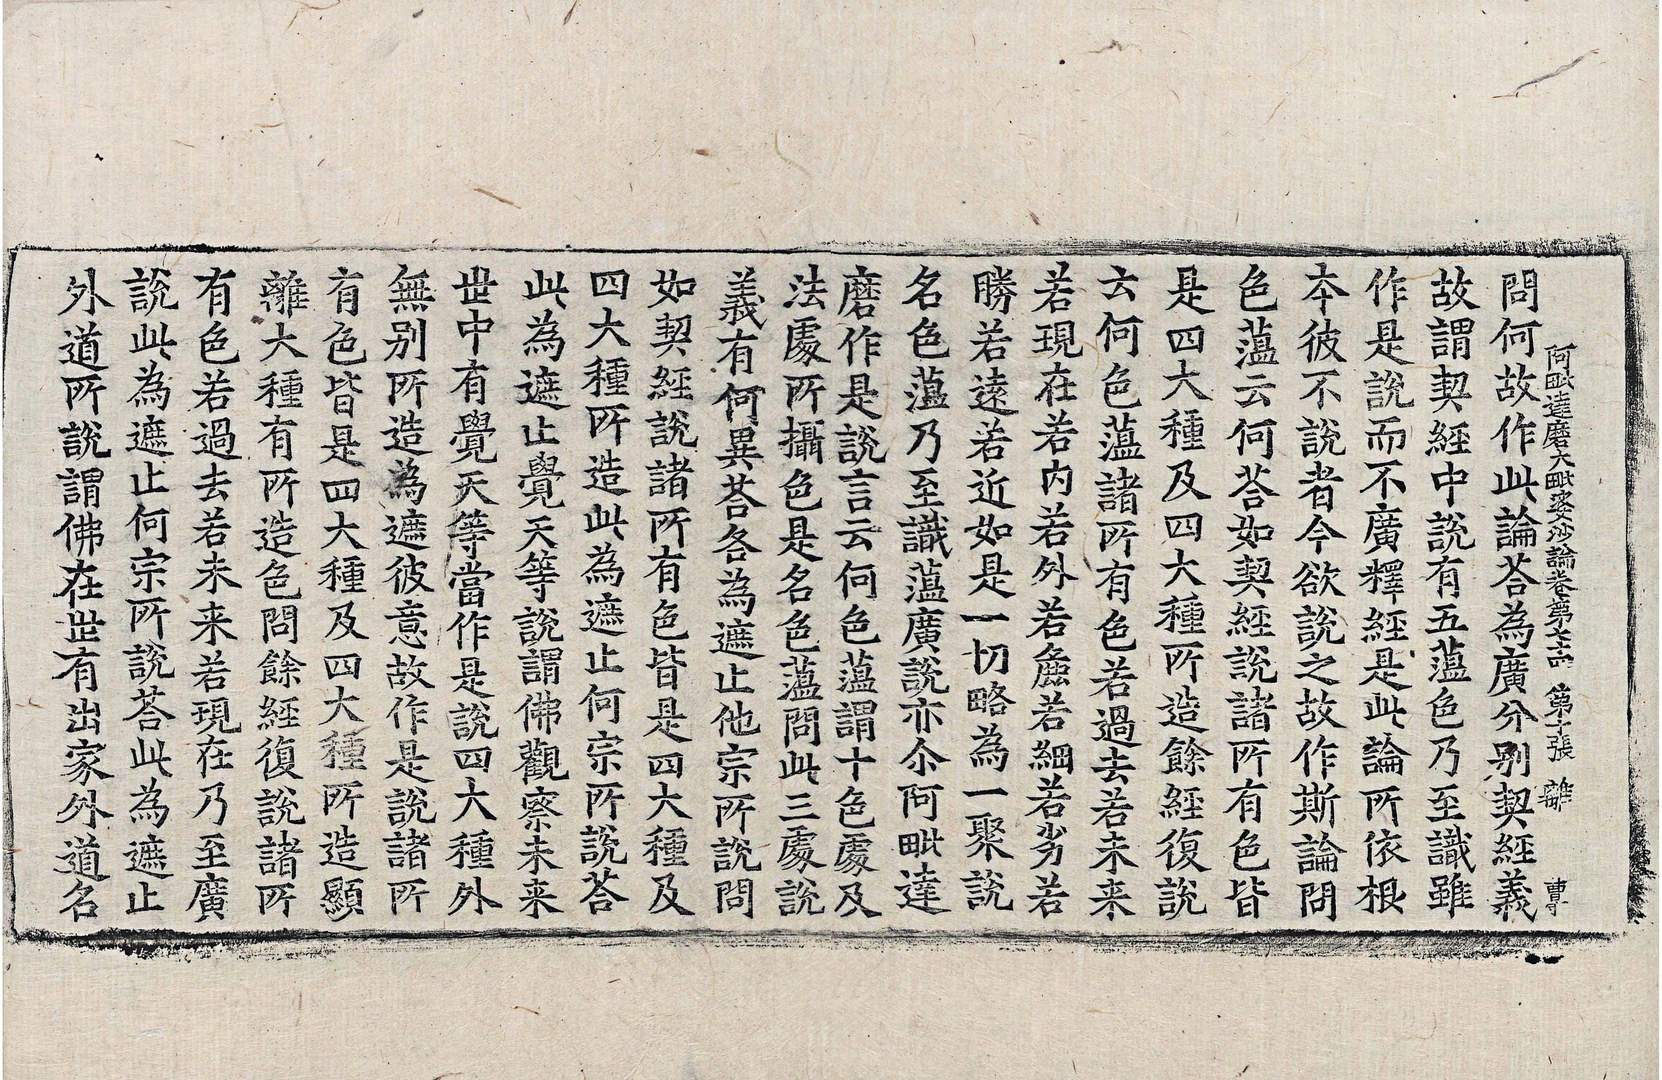 阿毗達磨大毗婆沙論卷第七十四 第十張 離 曹
問何故作此論荅為廣分别契經義
故謂契經中說有五蕰色乃至識雖
作是說而不廣釋經是此論所依根
本彼不說者今欲說之故作斯論問
色蕰云何荅如契經說諸所有色皆
是四大種及四大種所造餘經復說
云何色蕰諸所有色若過去若未来
若現在若内若外若麁若細若劣若
勝若遠若近如是一切略為一聚說
名色蕰乃至識蕰廣說亦尒阿毗達
磨作是說言云何色蕰謂十色處及
法處所攝色是名色蕰問此三處說
義有何異荅各為遮止他宗所說問
如契經說諸所有色皆是四大種及
四大種所造此為遮止何宗所說荅
此為遮止覺天等說謂佛觀察未来
世中有覺天等當作是說四大種外
無别所造為遮彼意故作是說諸所
有色皆是四大種及四大種所造顯
離大種有所造色問餘經復說諸所
有色若過去若未来若現在乃至廣
說此為遮止何宗所說荅此為遮止
外道所說謂佛在世有出家外道名